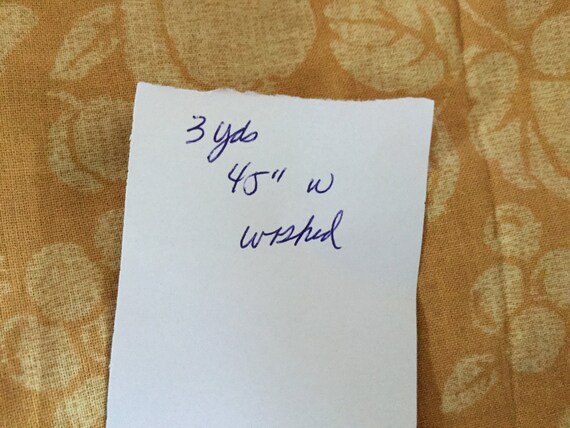 3 yds
45" w
washed